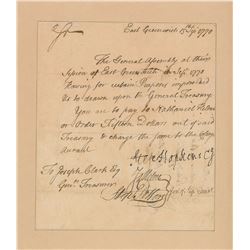 East Greenwich 15th Sepr 1770
The General Assembly at their
Session at East Greenwich in Sepr 1770
Having for certain Purposes impowered
Us to draw upon the General Treasury
You are to pay to Nathaniel
or Order Fifteen Dollars out of said
Treasury & charge the same to the Colony
account
To Joseph Clark Esq
Genl Treasurer
Step Hopkins